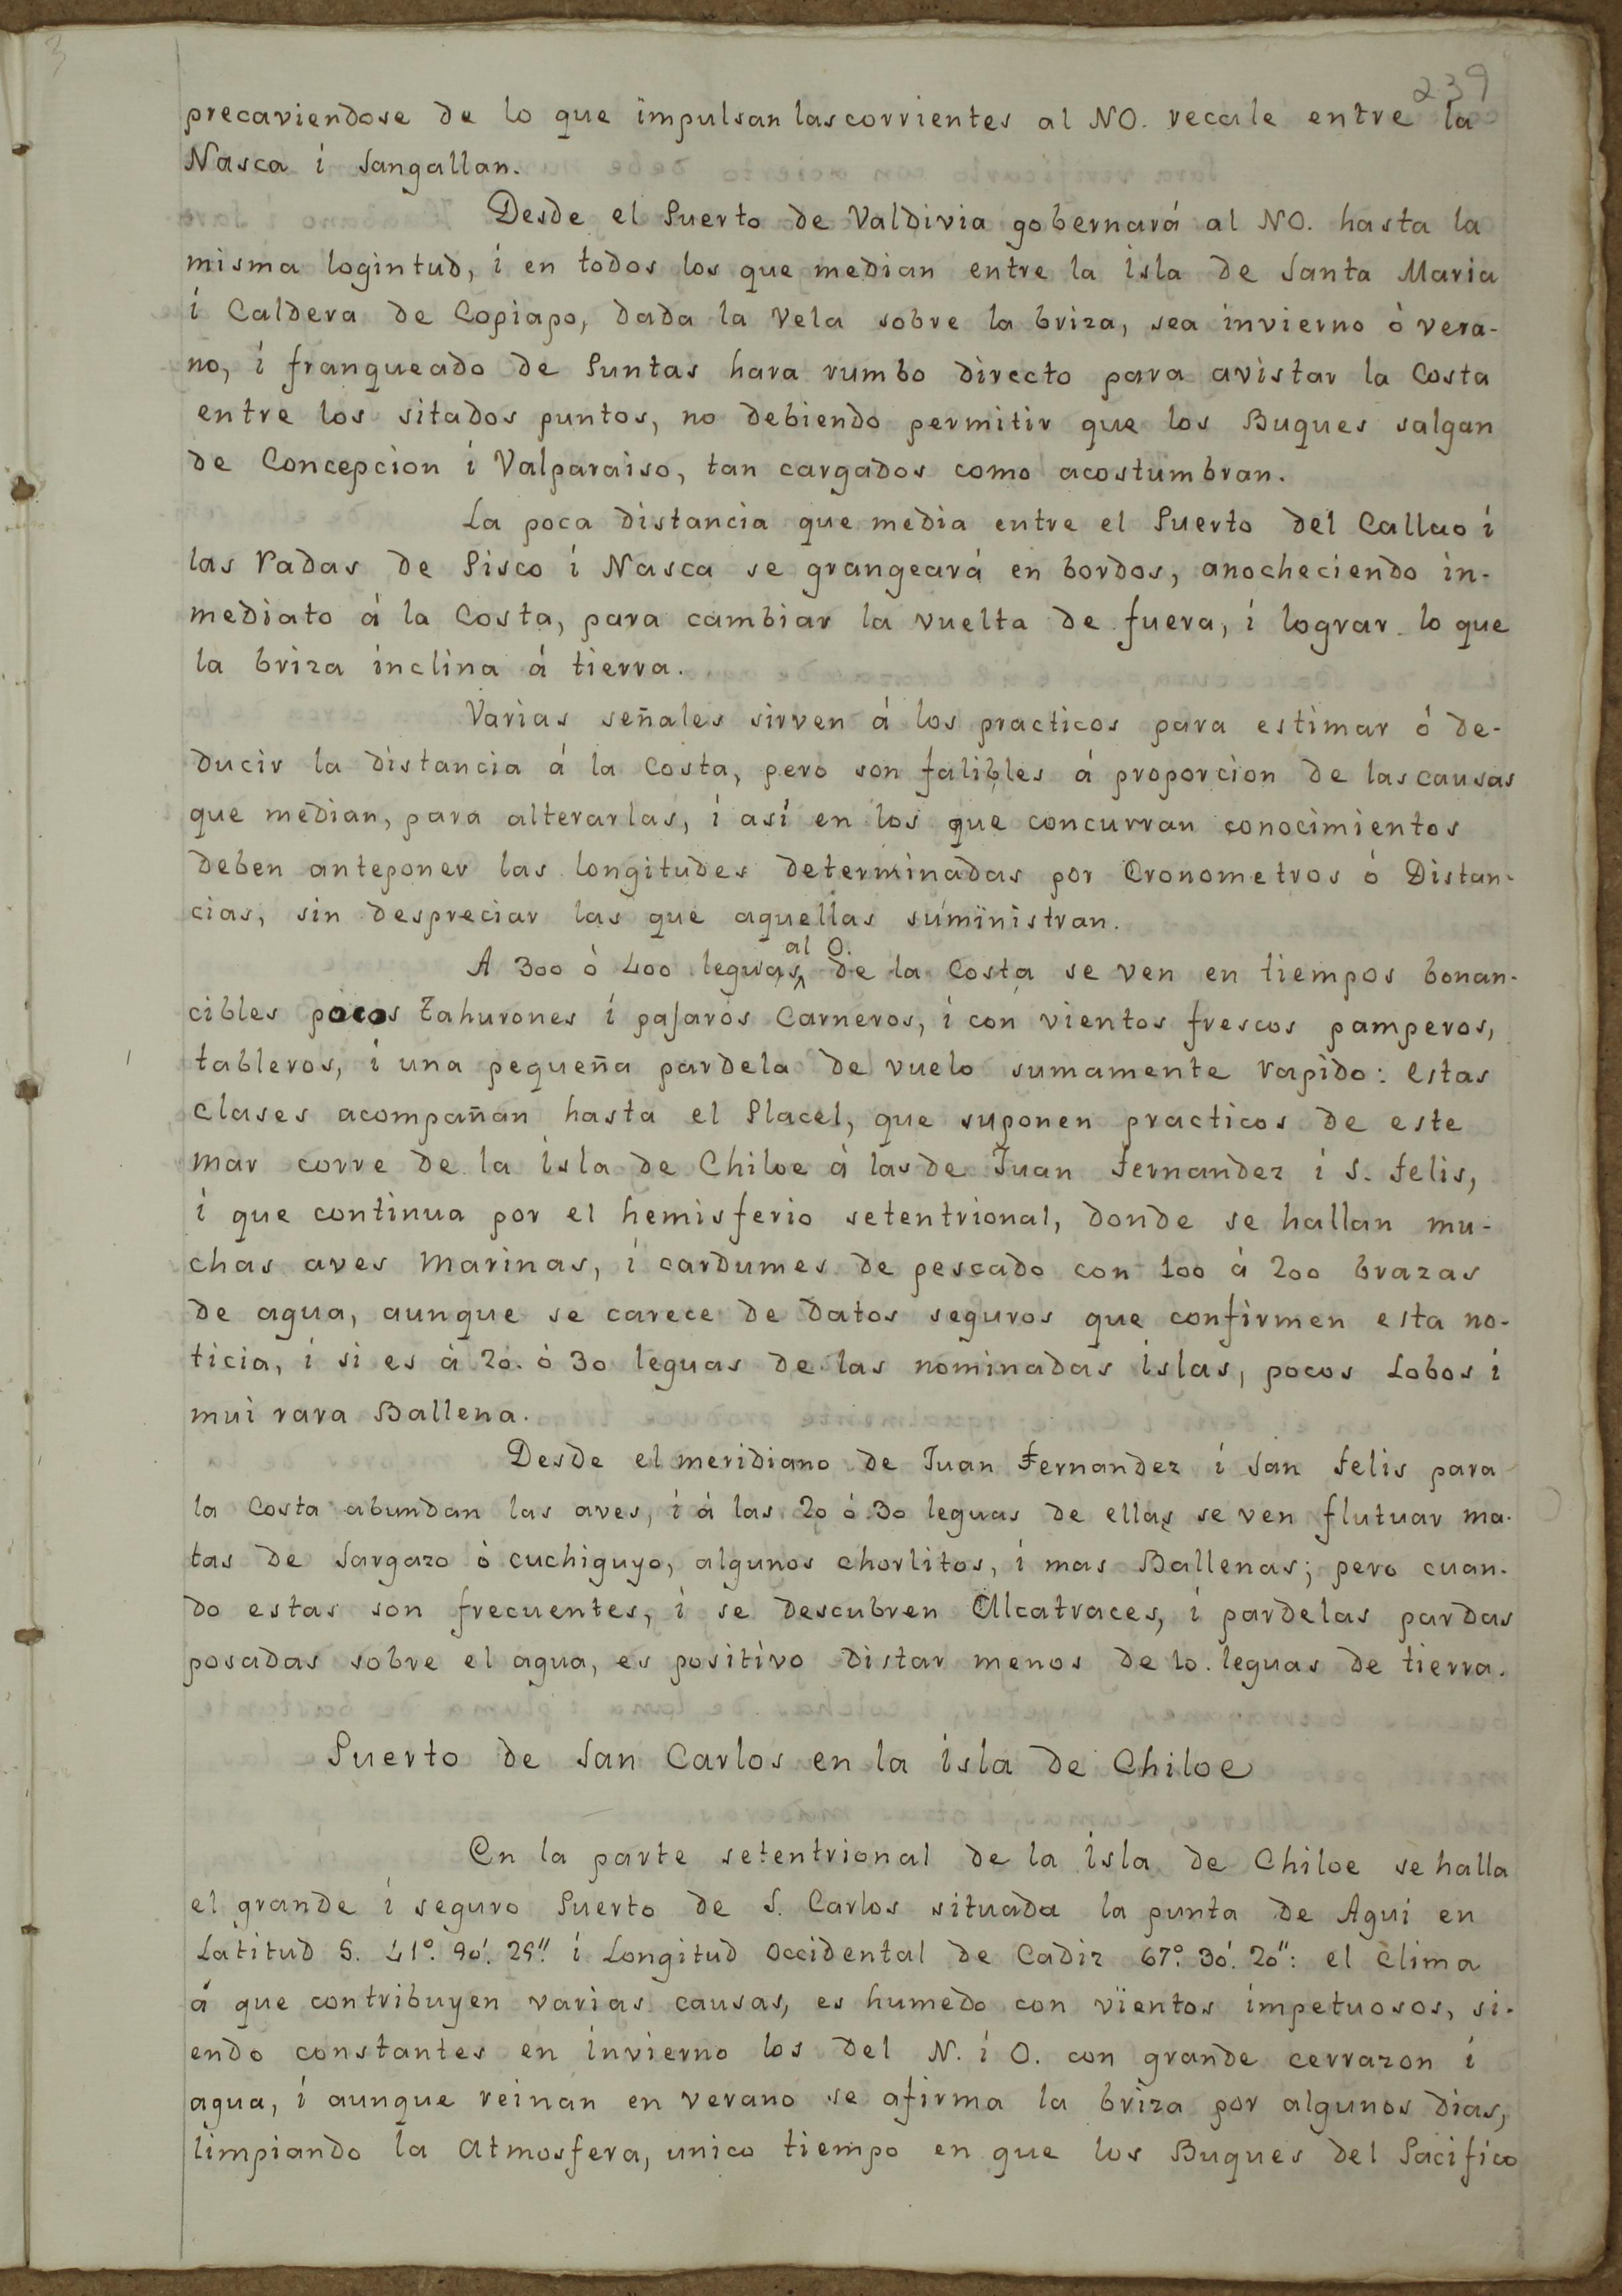 3
239
precaviendose de lo que impulsan las corrientes al NO. recale entre la
Nasca i Sangallan.
Desde el Puerto de Valdivia gobernará al NO. hasta la
misma logintud, i en todos los que median entre la isla de Santa Maria
i Caldera de Copiapo, dada la Vela sobre la briza, sea invierno ò vera-
no, i franqueado de Puntas hara rumbo directo para avistar la Costa
entre los sitados puntos, no debiendo permitir que los Buques salgan
de Concepcion i Valparaiso, tan cargados como acostumbran.
La poca distancia que media entre el Puerto del Callao i
las radas de Pisco i Nasca se grangeará en bordos, anocheciendo in-
mediato á la Costa, para cambiar la vuelta de fuera, i lograr lo que
la briza inclina á tierra.
Varias señales sirven á los practicos para estimar ó de-
ducir la distancia á la Costa, pero son falibles á proporcion de las causas
que median, para alterarlas, i así en los que concurran conocimientos
deben anteponer las longitudes determinadas por Cronometros ó Distan-
cias, sin despreciar las que aquellas suministran.
A 300 ò 400 leguas al O. de la Costa se ven en tiempos bonan-
cibles pocos tahurones i pajaros Carneros, i con vientos frescos pamperos,
tableros, i una pequeña pardela de vuelo sumamente rapido: estas
clases acompañan hasta el Placel, que suponen practicos de este
mar corre de la isla de Chiloe á las de Juan Fernandez i S. Felis,
i que continua por el hemisferio setentrional, donde se hallan mu-
chas aves marinas, i cardumes de pescado con 100 á 200 brazas
de agua, aunque se carece de datos seguros que confirmen esta no-
ticia, i si es á 20. ò 30 leguas de las nominadas islas, pocos Lobos i
mui rara Ballena.
Desde el meridiano de Juan Fernandez i San Felis para
la Costa abundan las aves, i á las 20 ó 30 leguas de ellas se ven flutuar ma-
tas de Sargazo ò cuchiguyo, algunos chorlitos, i mas Ballenas; pero cuan-
do estas son frecuentes, i se descubren Alcatraces, i pardelas pardas
posadas sobre el agua, es positivo distar menos de 10. leguas de tierra.
Puerto de San Carlos en la isla de Chiloe
En la parte setentrional de la isla de Chiloe se halla
el grande i seguro Puerto de S. Carlos situada la punta de Agui en
Latitud S. 41°. 90'. 25" i Longitud occidental de Cadiz 67°. 30'. 20": el clima
á que contribuyen varias causas, es humedo con vientos impetuosos, si-
endo constantes en invierno los del N. i O. con grande cerrazon i
agua, i aunque reinan en verano se afirma la briza por algunos dias,
limpiando la atmosfera, unico tiempo en que los Buques del Pacifico